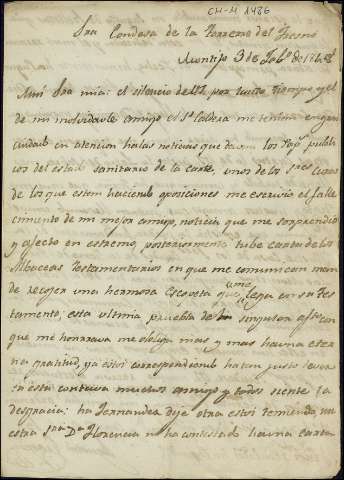 CM-M 1486
Sra Condesa de la Torre del Fresno
Montijo 3 de Feb.o de 186
Muí Sra mia: el silencio de V. por tanto tiempo y el
de mi inolvidable amigo el Sr Caldera me tenia en gran
cuidado en atencion ha las noticias que davan los Pap.s publi
cos del estado sanitario de la corte, unos de los Sres Curas
de los que estan haciendo oposiciones me escrivio el falle
cimiento de mi mejor amigo, noticia que me sorprendio
y afecto en estremo, posteriormente tube carta de los
Albaceas Testamentarios en que me comunican man
de recojer una hermosa Escopeta que me lega en su Tes
tamento, esta ultima prueba de la singular aficion
que me honrrava me obliga mas y mas ha una eter
na gratitud, ya estoi correspondiendo ha tan justo favor
en esta contava muchos amigos y todos siente la
desgracia: ha Fernandez dije otra estoi temiendo, nu
estra Sra Da Florencia no ha contestado ha una carta